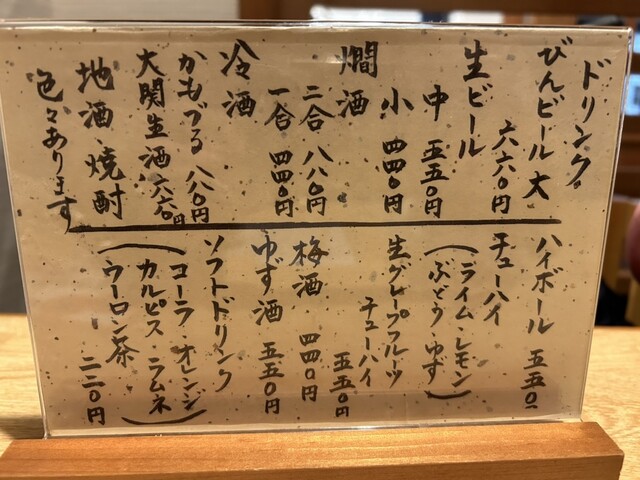 ドリンク
びんビール 大
六六〇円
生ビール
中 五五〇円
小 四四〇円
燗酒
二合 八八〇円
一合 四四〇円
冷酒
かもづる 八八〇円
大関生酒 六六〇円
地酒・焼酎
色々あります
ハイボール 五五〇
チューハイ
(ライム・レモン
ぶどう・ゆず)
生グレープフルーツ
チューハイ
五五〇円
梅酒 四四〇円
ゆず酒 五五〇円
ソフトドリンク
(コーラ・オレンジ
カルピス・ラムネ)
ウーロン茶
二二〇円